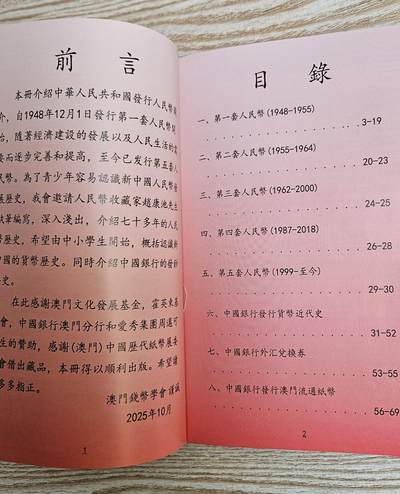 前言
本冊介紹中華人民共和國發行人民幣
介，自1948年12月1日發行第一套人民幣
始，隨著經濟建設的發展以及人民生活的
要而逐步完善和提高，至今已發行第五套人
民幣。為了青少年容易認識新中國人民幣發
展歷史，我會邀請人民幣收藏家趙康池先生
執筆編寫，深入淺出，介紹七十多年的人民
幣歷史，希望由中小學生開始，概括認識新
中國的貨幣歷史。同時介紹中國銀行的發鈔
史。
在此感謝澳門文化發展基金，霍英東基
會，中國銀行澳門分行和愛秀集團周通可
生的贊助，感謝(澳門)中國歷代紙幣展委
會借出藏品，本冊得以順利出版。希望諸
多多指正。
澳門錢幣學會謹誠
2025年10月
1
目錄
一、第一套人民幣(1948-1955)
3-19
二、第二套人民幣(1955-1964)
20-23
三、第三套人民幣(1962-2000)
24-25
四、第四套人民幣(1987-2018)
26-28
五、第五套人民幣(1999-至今)
29-30
六、中國銀行發行貨幣近代史
31-52
七、中國銀行外汇兌換券
53-55
八、中國銀行發行澳門流通紙幣
56-69
2